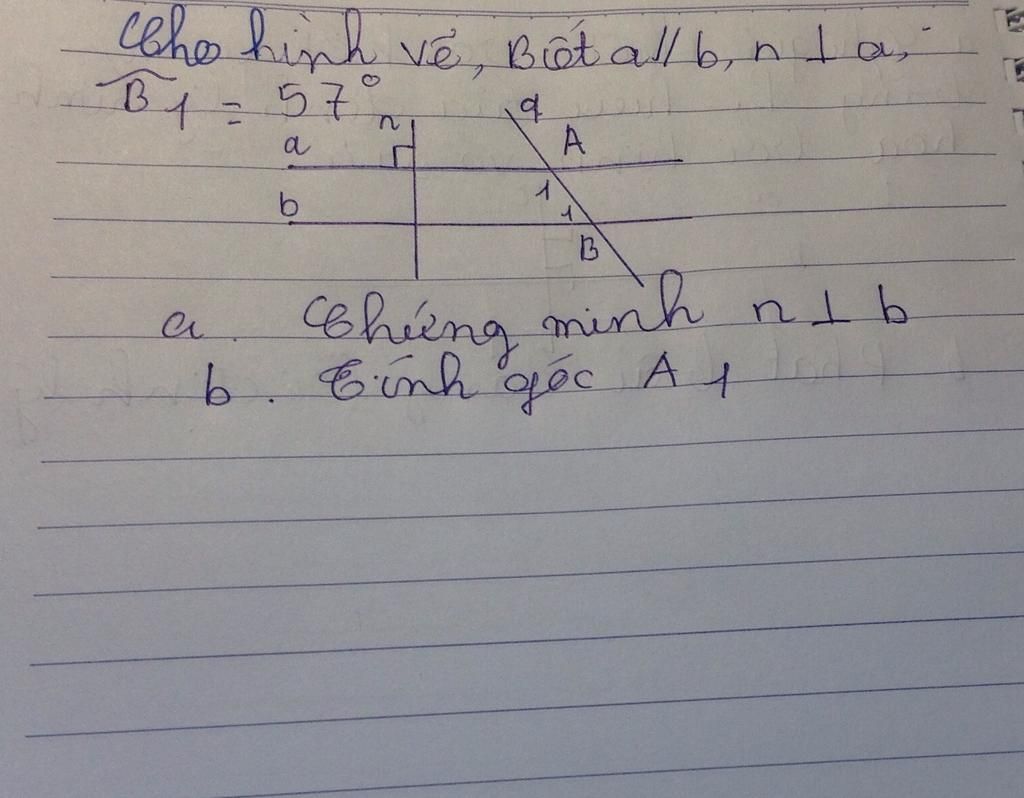 Cho hình vẽ, Biết a // b, n ⊥ a,
B̂1 = 57°
n
q
a
A
1
b
1
B
a. Chứng minh n ⊥ b
b. Tính góc A1